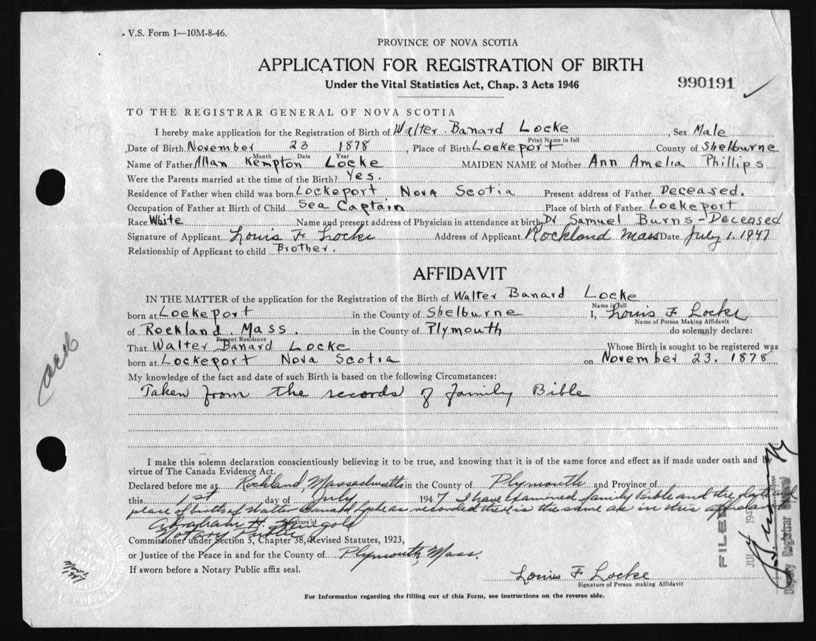 V.S. Form 1—10M-8-46.
PROVINCE OF NOVA SCOTIA
APPLICATION FOR REGISTRATION OF BIRTH
Under the Vital Statistics Act, Chap. 3 Acts 1946
990191
TO THE REGISTRAR GENERAL OF NOVA SCOTIA
I hereby make application for the Registration of Birth of Walter Banard Locke, Sex Male
Print Name in full
Date of Birth November 23 1878, Place of Birth Lockeport County of Shelburne
Month Date Year
Name of Father Allan Kempton Locke MAIDEN NAME of Mother Ann Amelia Phillips
Were the Parents married at the time of the Birth? Yes.
Residence of Father when child was born Lockeport Nova Scotia Present address of Father Deceased.
Occupation of Father at Birth of Child Sea Captain Place of birth of Father Lockeport
Race White Name and present address of Physician in attendance at birth Dr Samuel Burns-Deceased
Signature of Applicant Louis F Locke Address of Applicant Rockland Mass Date July 1. 1947
Relationship of Applicant to child Brother.
AFFIDAVIT
IN THE MATTER of the application for the Registration of the Birth of Walter Banard Locke
Name in full
born at Lockeport in the County of Shelburne I, Louis F. Locke
Name of Person Making Affidavit
of Rockland Mass. in the County of Plymouth do solemnly declare:
Present Residence
That Walter Banard Locke Whose Birth is sought to be registered was
born at Lockeport Nova Scotia on November 23. 1878
My knowledge of the fact and date of such Birth is based on the following Circumstances:
Taken from the records of family Bible
I make this solemn declaration conscientiously believing it to be true, and knowing that it is of the same force and effect as if made under oath and
virtue of The Canada Evidence Act.
Declared before me at Rockland, Massachusetts in the County of Plymouth and Province of
this 1st day of July 1947 I have examined family bible and the date and
place of birth of Walter Banard Locke as recorded therein is the same as in this
Abraham H.
Notary Public
Commissioner under Section 5, Chapter 38, Revised Statutes, 1923,
or Justice of the Peace in and for the County of Plymouth, Mass.
If sworn before a Notary Public affix seal.
Louis F Locke
Signature of Person making Affidavit
For Information regarding the filling out of this Form, see instructions on the reverse side.
FILED
Deputy Registrar General